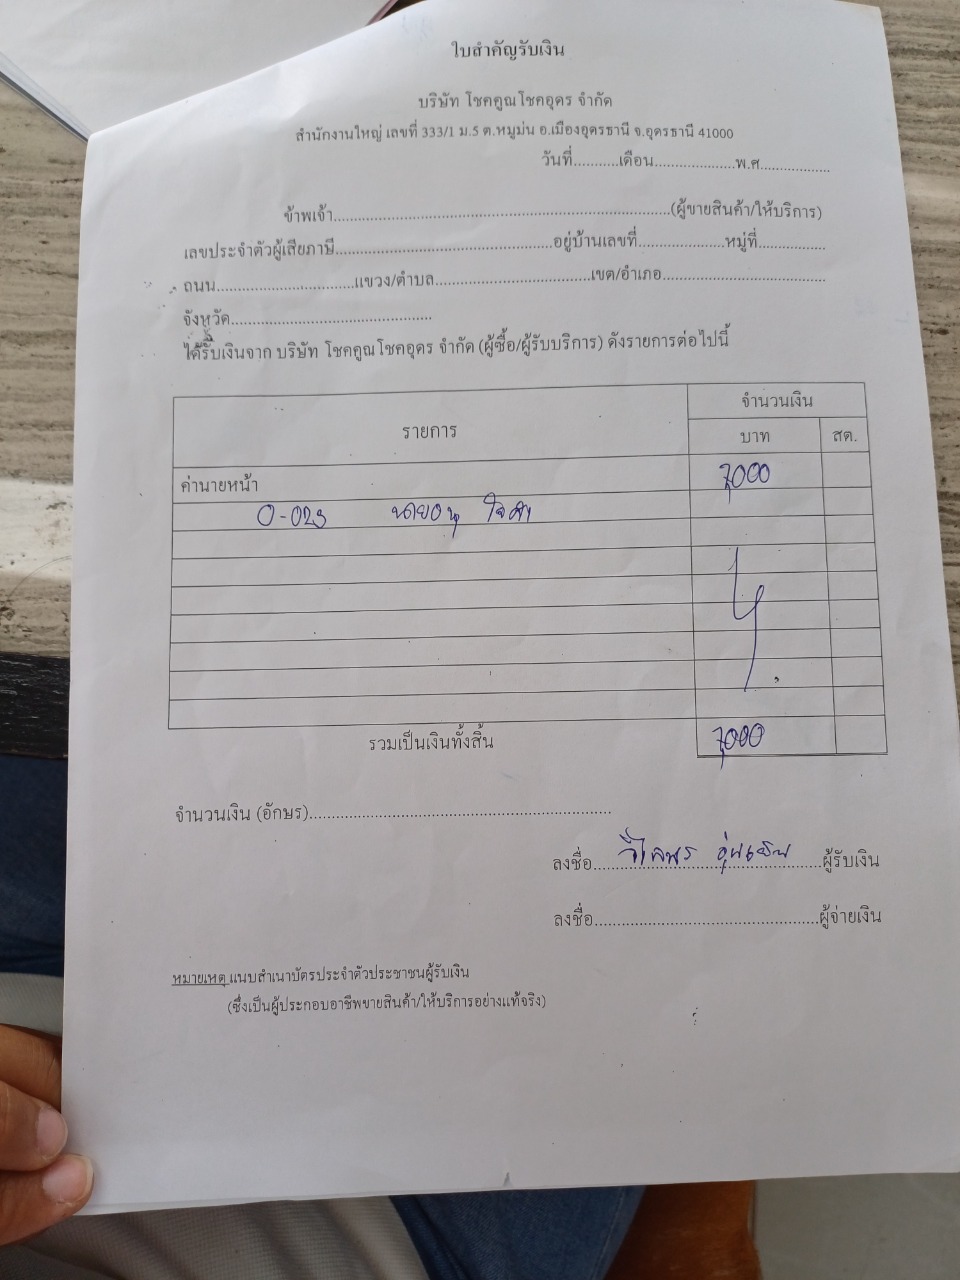 ใบสำคัญรับเงิน
บริษัท โชคคูณโชคอุดร จำกัด
สำนักงานใหญ่ เลขที่ 333/1 ม.5 ต.หมูม่น อ.เมืองอุดรธานี จ.อุดรธานี 41000
วันที่...........เดือน....................พ.ศ.................
ข้าพเจ้า................................................................................(ผู้ขายสินค้า/ให้บริการ)
เลขประจำตัวผู้เสียภาษี....................................................อยู่บ้านเลขที่....................หมู่ที่................
ถนน.................................แขวง/ตำบล.....................................เขต/อำเภอ.......................................
จังหวัด................................................
ได้รับเงินจาก บริษัท โชคคูณโชคอุดร จำกัด (ผู้ซื้อ/ผู้รับบริการ) ดังรายการต่อไปนี้
รายการ จำนวนเงิน
บาท สต.
ค่านายหน้า 7,000
นายอนุ
รวมเป็นเงินทั้งสิ้น 7,000
จำนวนเงิน (อักษร)......................................................................
ลงชื่อ....................................................ผู้รับเงิน
ลงชื่อ....................................................ผู้จ่ายเงิน
หมายเหตุ แนบสำเนาบัตรประจำตัวประชาชนผู้รับเงิน
(ซึ่งเป็นผู้ประกอบอาชีพขายสินค้า/ให้บริการอย่างแท้จริง)